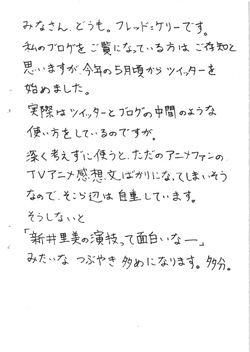 みなさん、どうも。フレッド・ケリーです。
私のブログをご覧になっている方は、ご存知と
思いますが、今年の5月頃からツイッターを
始めました。
実際はツイッターとブログの中間のような
使い方をしているのですが。
深く考えずに使うと、ただのアニメファンの
TVアニメ感想文ばかりになってしまいそう
なので、そこら辺は自重しています。
そうしないと
「新井里美の演技って面白いなー」
みたいな つぶやき 多めになります。多分。